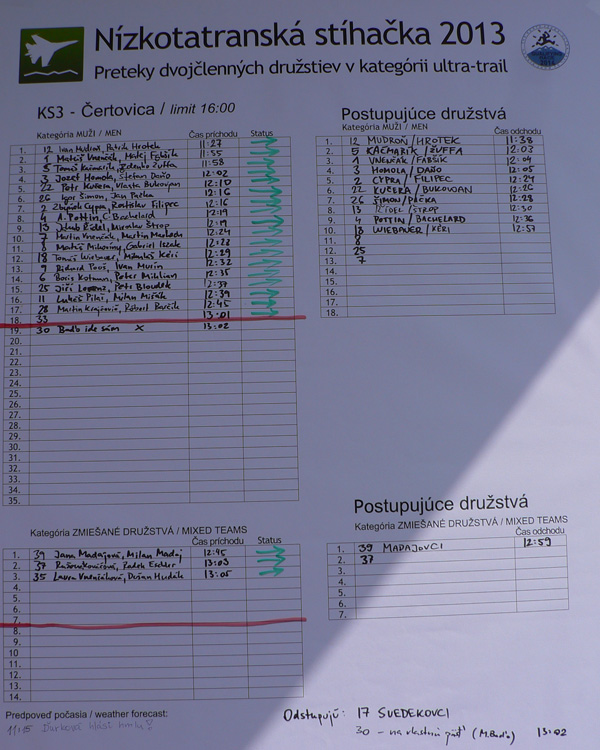 Nízkotatranská stíhačka 2013
Preteky dvojčlenných družstiev v kategórii ultra-trail
KS3 - Čertovica / limit 16:00
Kategória MUŽI / MEN Čas príchodu Status
1. 12 Ivan Mudroň, Patrik Hrotek 11:27
2. 1 Matúš Vnenčák, Matej Fabšík 11:55
3. 5 Tomáš Kačmarik, Zdenko Zuffa 11:58
4. 3 Jozef Homola, Štefan Daňo 12:02
5. 22 Petr Kučera, Vlasta Bukovan 12:10
6. 26 Igor Šimon, Jan Pačka 12:16
7. 2 Zbyněk Cypra, Rostislav Filipec 12:16
8. 4 A. Pottin, C. Bachelard 12:19
9. 13 Jakub Řídel, Miroslav Štrop 12:19
10. 7 Martin Vnenčák, Martin 12:24
11. 8 Matúš Gabriel 12:28
12. 18 Tomáš Wiebauer, Kéri 12:29
13. 9 Richard Pouš, Ivan Murín 12:32
14. 6 Boris Kotman, Peter Mihlian 12:35
15. 25 Jiří Lorenz, Petr Bloudek 12:37
16. 11 Lukáš Pilný, Milan Mičák 12:39
17. 28 Martin Krajčovič, Róbert 12:45
18. 33 13:01
19. 30 Baďo ide sám x 13:02
20.
21.
22.
23.
24.
25.
26.
27.
28.
29.
30.
31.
32.
33.
34.
35.
Postupujúce družstvá
Kategória MUŽI / MEN Čas odchodu
1. 12 MUDROŇ / HROTEK 11:38
2. 5 KAČMARIK / ZUFFA 12:03
3. 1 VNENČÁK / FABŠÍK 12:04
4. 3 HOMOLA / DAŇO 12:05
5. 2 CYPRA / FILIPEC 12:24
6. 22 KUČERA / BUKOVAN 12:26
7. 26 ŠIMON / PAČKA 12:28
8. 13 ŘÍDEL / ŠTROP 12:30
9. 4 POTTIN / BACHELARD 12:36
10. 18 WIEBAUER / KÉRI 12:57
11. 8
12. 25
13. 7
14.
15.
16.
17.
18.
Kategória ZMIEŠANÉ DRUŽSTVÁ / MIXED TEAMS Čas príchodu Status
1. 39 Jana Madajová, Milan Madaj 12:45
2. 37 Radek 13:03
3. 35 Laura Vrzniaková, Dušan Hudák 13:05
4.
5.
6.
7.
8.
9.
10
11.
12.
13.
14.
Postupujúce družstvá
Kategória ZMIEŠANÉ DRUŽSTVÁ / MIXED TEAMS
Čas odchodu
1. 39 MADAJOVCI 12:59
2. 37
3.
4.
5.
6.
7.
Predpoveď počasia / weather forecast:
11:15
Odstupujú: 17 SVEDEKOVCI
30 - na vlastnú päsť (M. Baďo) 13:02